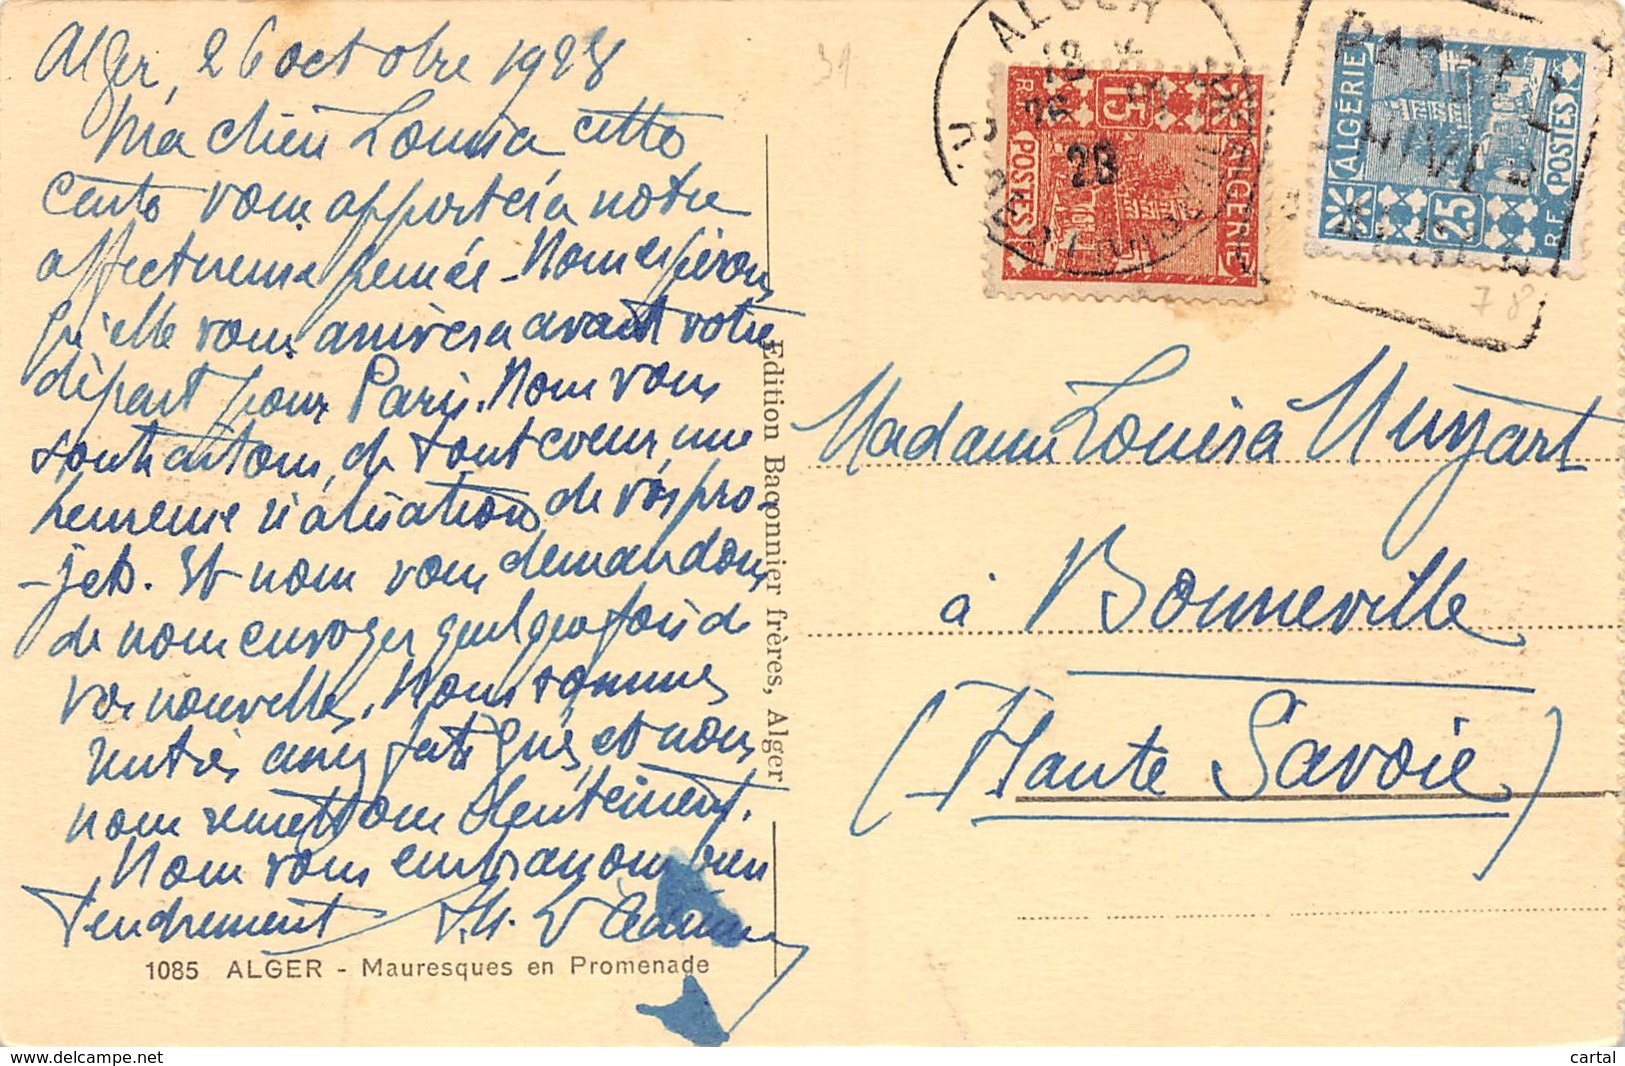 Alger, 26 octobre 1928
Ma chère Louisa cette
carte vous apportera notre
affectueuse pensée - Nous espérons
qu'elle vous arrivera avant votre
départ pour Paris. Nous vous
souhaitons, de tout coeur, une
heureuse réalisation de vos pro-
-jets. Et nous vous demandons
de nous envoyer quelquefois de
vos nouvelles. Nous sommes
rentrés assez fatigués, et nous
nous remettons lentement.
Nous vous embrassons bien
tendrement
1085 ALGER - Mauresques en Promenade
Edition Baçonnier frères, Alger
31
ALGER
28
15
R.F.
POSTES
ALGERIE
ALGÉRIE
25
R.F.
POSTES
78
Madame Louisa Muzart
à Bonneville
(Haute Savoie)
www.delcampe.net
cartal